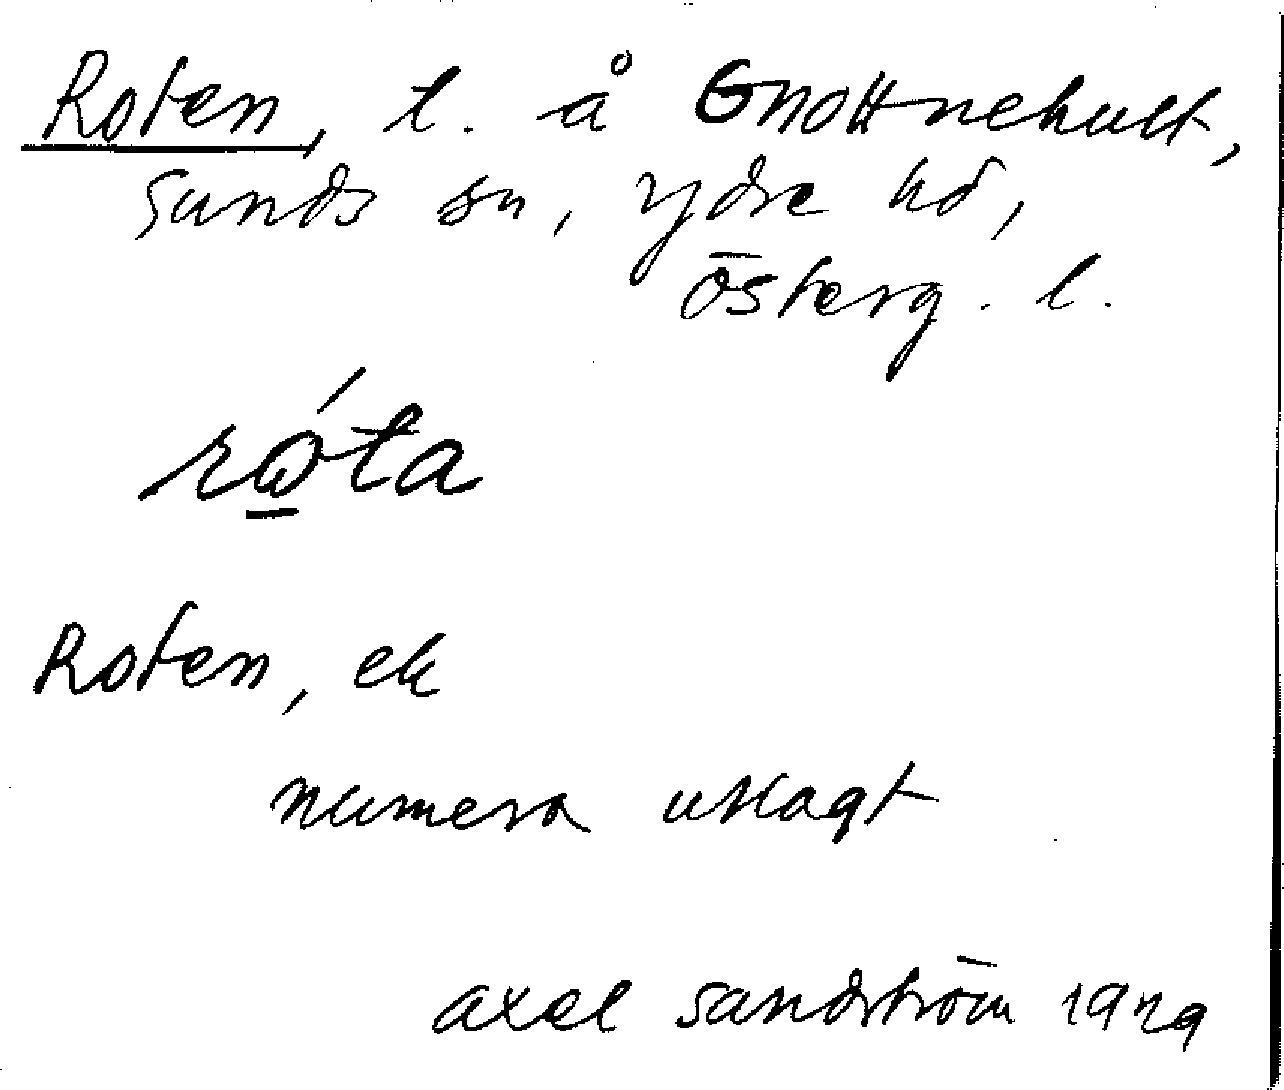 Roten, t. å Gnottnehult,
Sunds sn, Ydre hd,
Österg. l.
rώta
Roten, ek
numera utlagt
Axel Sandström 1929